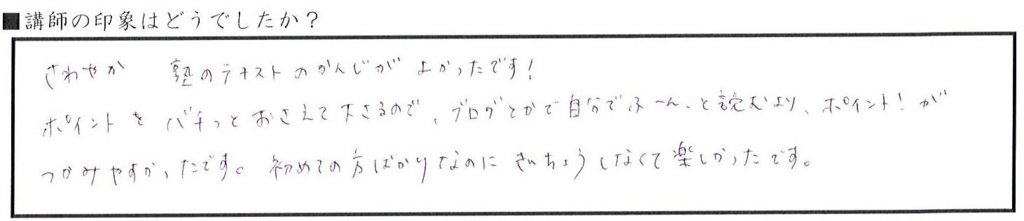 ■講師の印象はどうでしたか？
さわやか　塾のテキストのかんじがよかったです！
ポイントをバチっとおさえて下さるので、ブログとかで自分でふーん、と読むより、ポイント！が
つかみやすかったです。初めての方ばかりなのにきんちょうしなくて楽しかったです。